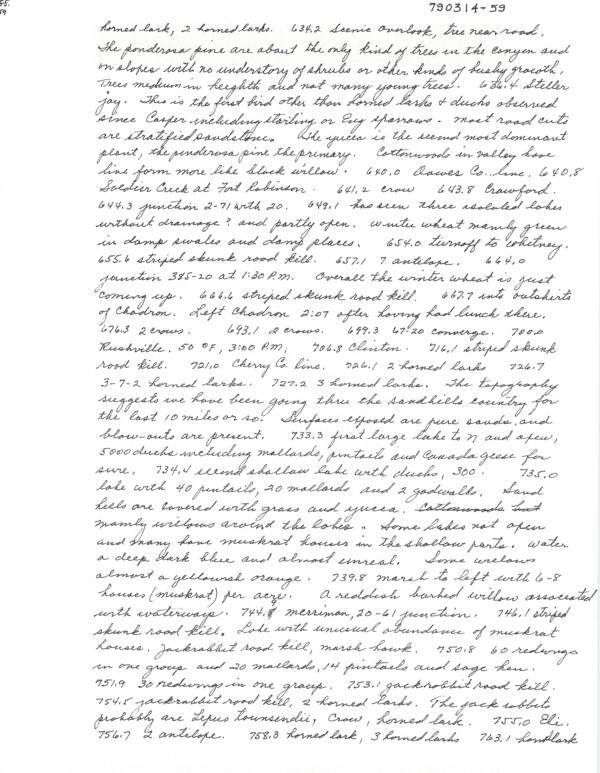 55.
59
790314-59
horned lark, 2 horned larks. 634.2 Scenic Overlook, tree near road.
The ponderosa pine are about the only kind of trees in the canyon and
on slopes with no understory of shrubs or other kinds of bushy growth.
Trees medium in heighth and not many young trees. 636.4 Steller
jay. This is the first bird other than horned larks & ducks observed
since Casper including starling or Eng sparrows - most road cuts
are stratified sandstone. The yucca is the second most dominant
plant, the ponderosa pine the primary. Cottonwoods in valley have
line form more like black willow. 640.0 Dawes Co. line. 640.8
Soldier Creek at Fort Robinson. 641.2 crow 643.8 Crawford.
644.3 junction 2-71 with 20. 649.1 has seen three isolated lakes
without drainage? and partly open. Winter wheat mainly green
in damp swales and damp places. 654.0 turnoff to Whitney.
655.6 striped skunk road kill. 657.1 7 antelope. 664.0
junction 385-20 at 1:20 P.M. Overall the winter wheat is just
coming up. 666.6 striped skunk road kill. 667.7 into outskirts
of Chadron. Left Chadron 2:07 after having had lunch there.
676.3 2 crows. 693.1 2 crows. 699.3 67-20 converge. 700.0
Rushville. 50 °F, 3:00 P.M; 706.8 Clinton. 716.1 striped skunk
road kill. 721.0 Cherry Co. line. 726.1 2 horned larks 726.7
3-7-2 horned larks. 727.2 3 horned larks. The topography
suggests we have been going thru the sandhills country for
the last 10 miles or so. Surfaces exposed are pure sands, and
blow-outs are present. 733.3 first large lake to N and open,
5000 ducks including mallards, pintails and Canada geese for
sure. 734.4 second shallow lake with ducks, 300. 735.0
lake with 40 pintails, 20 mallards and 2 gadwalls. Sand
hills are covered with grass and yucca. Cottonwoods but
mainly willows around the lakes. Some lakes not open
and many have muskrat houses in the shallow parts. Water
a deep dark blue and almost unreal. Some willows
almost a yellowish orange. 739.8 marsh to left with 6-8
houses (muskrat) per acre. A reddish barked willow associated
with waterways. 744.8 Merriman, 20-61 junction. 746.1 striped
skunk road kill. Lake with unusual abundance of muskrat
houses. Jackrabbit road kill, marsh hawk. 750.8 60 redwings
in one group and 20 mallards, 14 pintails and sage hen.
751.9 30 redwings in one group. 753.1 jackrabbit road kill.
754.5 jackrabbit road kill, 2 horned larks. The jack rabbits
probably are Lepus townsendii, Crow, horned lark. 755.0 Eli.
756.7 2 antelope. 758.3 horned lark, 3 horned larks 763.1 horned lark